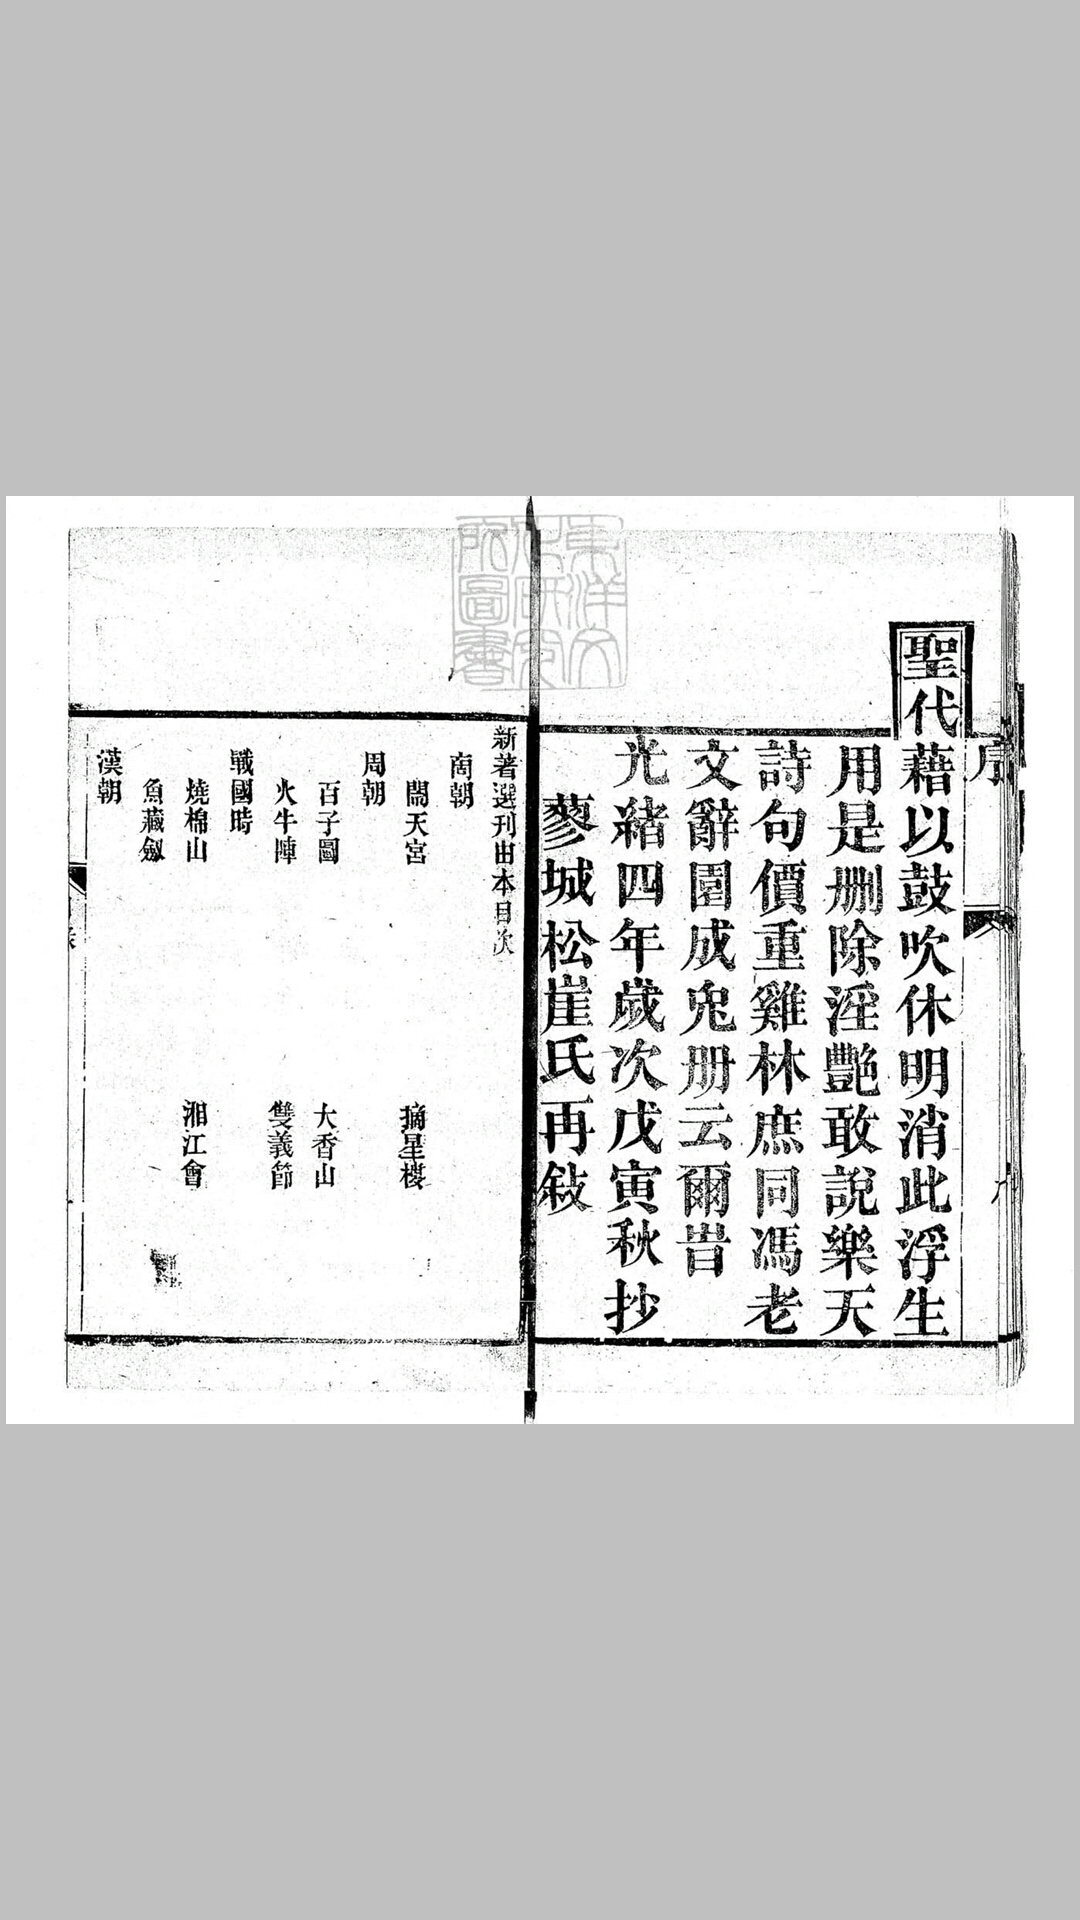 序
聖代藉以鼓吹休明消此浮生
用是刪除淫艷敢說樂天
詩句價重雞林庶同馮老
文辭園成兎册云爾旹
光緒四年歲次戊寅秋抄
蓼城松崖氏再敍
新著選刊曲本目次
商朝
鬧天宮 摘星楼
周朝
百子圖 大香山
火牛陣 雙義節
戰國時
燒棉山 湘江會
魚藏劍
漢朝
東洋文化研究所圖書